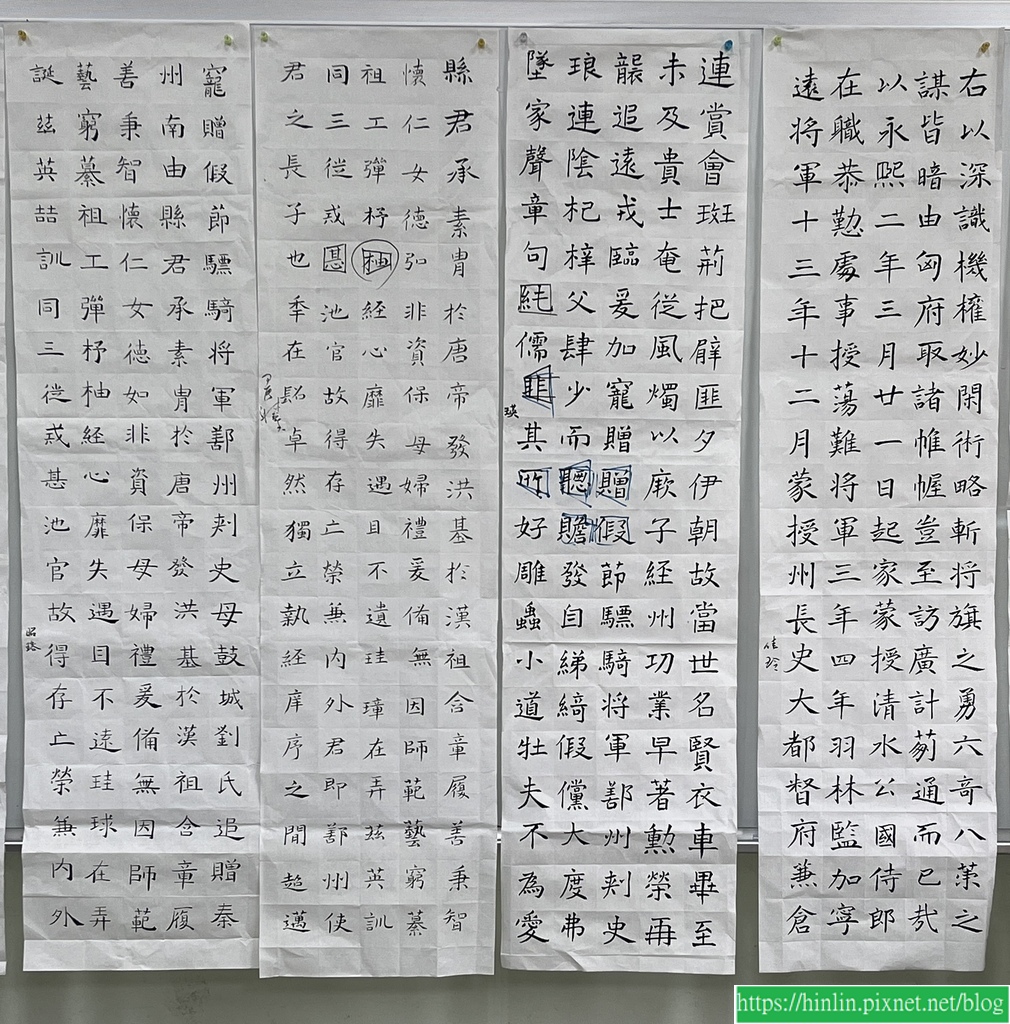 右以深識機權妙閑術略斬将旗之勇六奇八策之
謀皆暗由匈府取諸帷幄豈至訪廣計蒭通而已㢤
以永熙二年三月廿一日起家蒙授清水公國侍郎
在職恭懃處事授蕩難将軍三年四年羽林監加寧
遠将軍十三年十二月蒙授州長史大都督府兼倉
佳玲
連賞會珽荊把辟匪夕伊朝故當世名賢衣車畢至
未及貴士奄従風燭以厥子経州功業早著勲榮再
襲追遠戎臨爰加寵贈贈假節驃騎将軍鄯州刾史
琅連陰杞梓父肆少而聽贍發自綈綺假儻大度弗
墜家聲章句純儒韭其所好雕蟲小道壮夫不為愛
瑛
縣君承素胄於唐帝發洪基於漢祖含章履善秉智
懷仁女徳弘非資保母婦禮爰俻無因師範藝窮綦
祖工彈杼柚経心靡失遇目不遺珪璋在弄兹英訓
同三従戎甚池官故得存亡榮兼内外君即鄯州使
君之長子也秊在髫卓然獨立執経庠序之間超邁
寵贈假節驃騎将軍鄯州刾史母鼓城劉氏追贈秦
州南由縣君承素胄於唐帝發洪基於漢祖含章履
善秉智懷仁女徳如非資保母婦禮爰俻無因師範
藝窮綦祖工彈杼柚経心靡失遇目不遠珪球在弄
誕兹英喆訓同三従戎甚池官故得存亡榮兼内外
https://hinlin.pixnet.net/blog